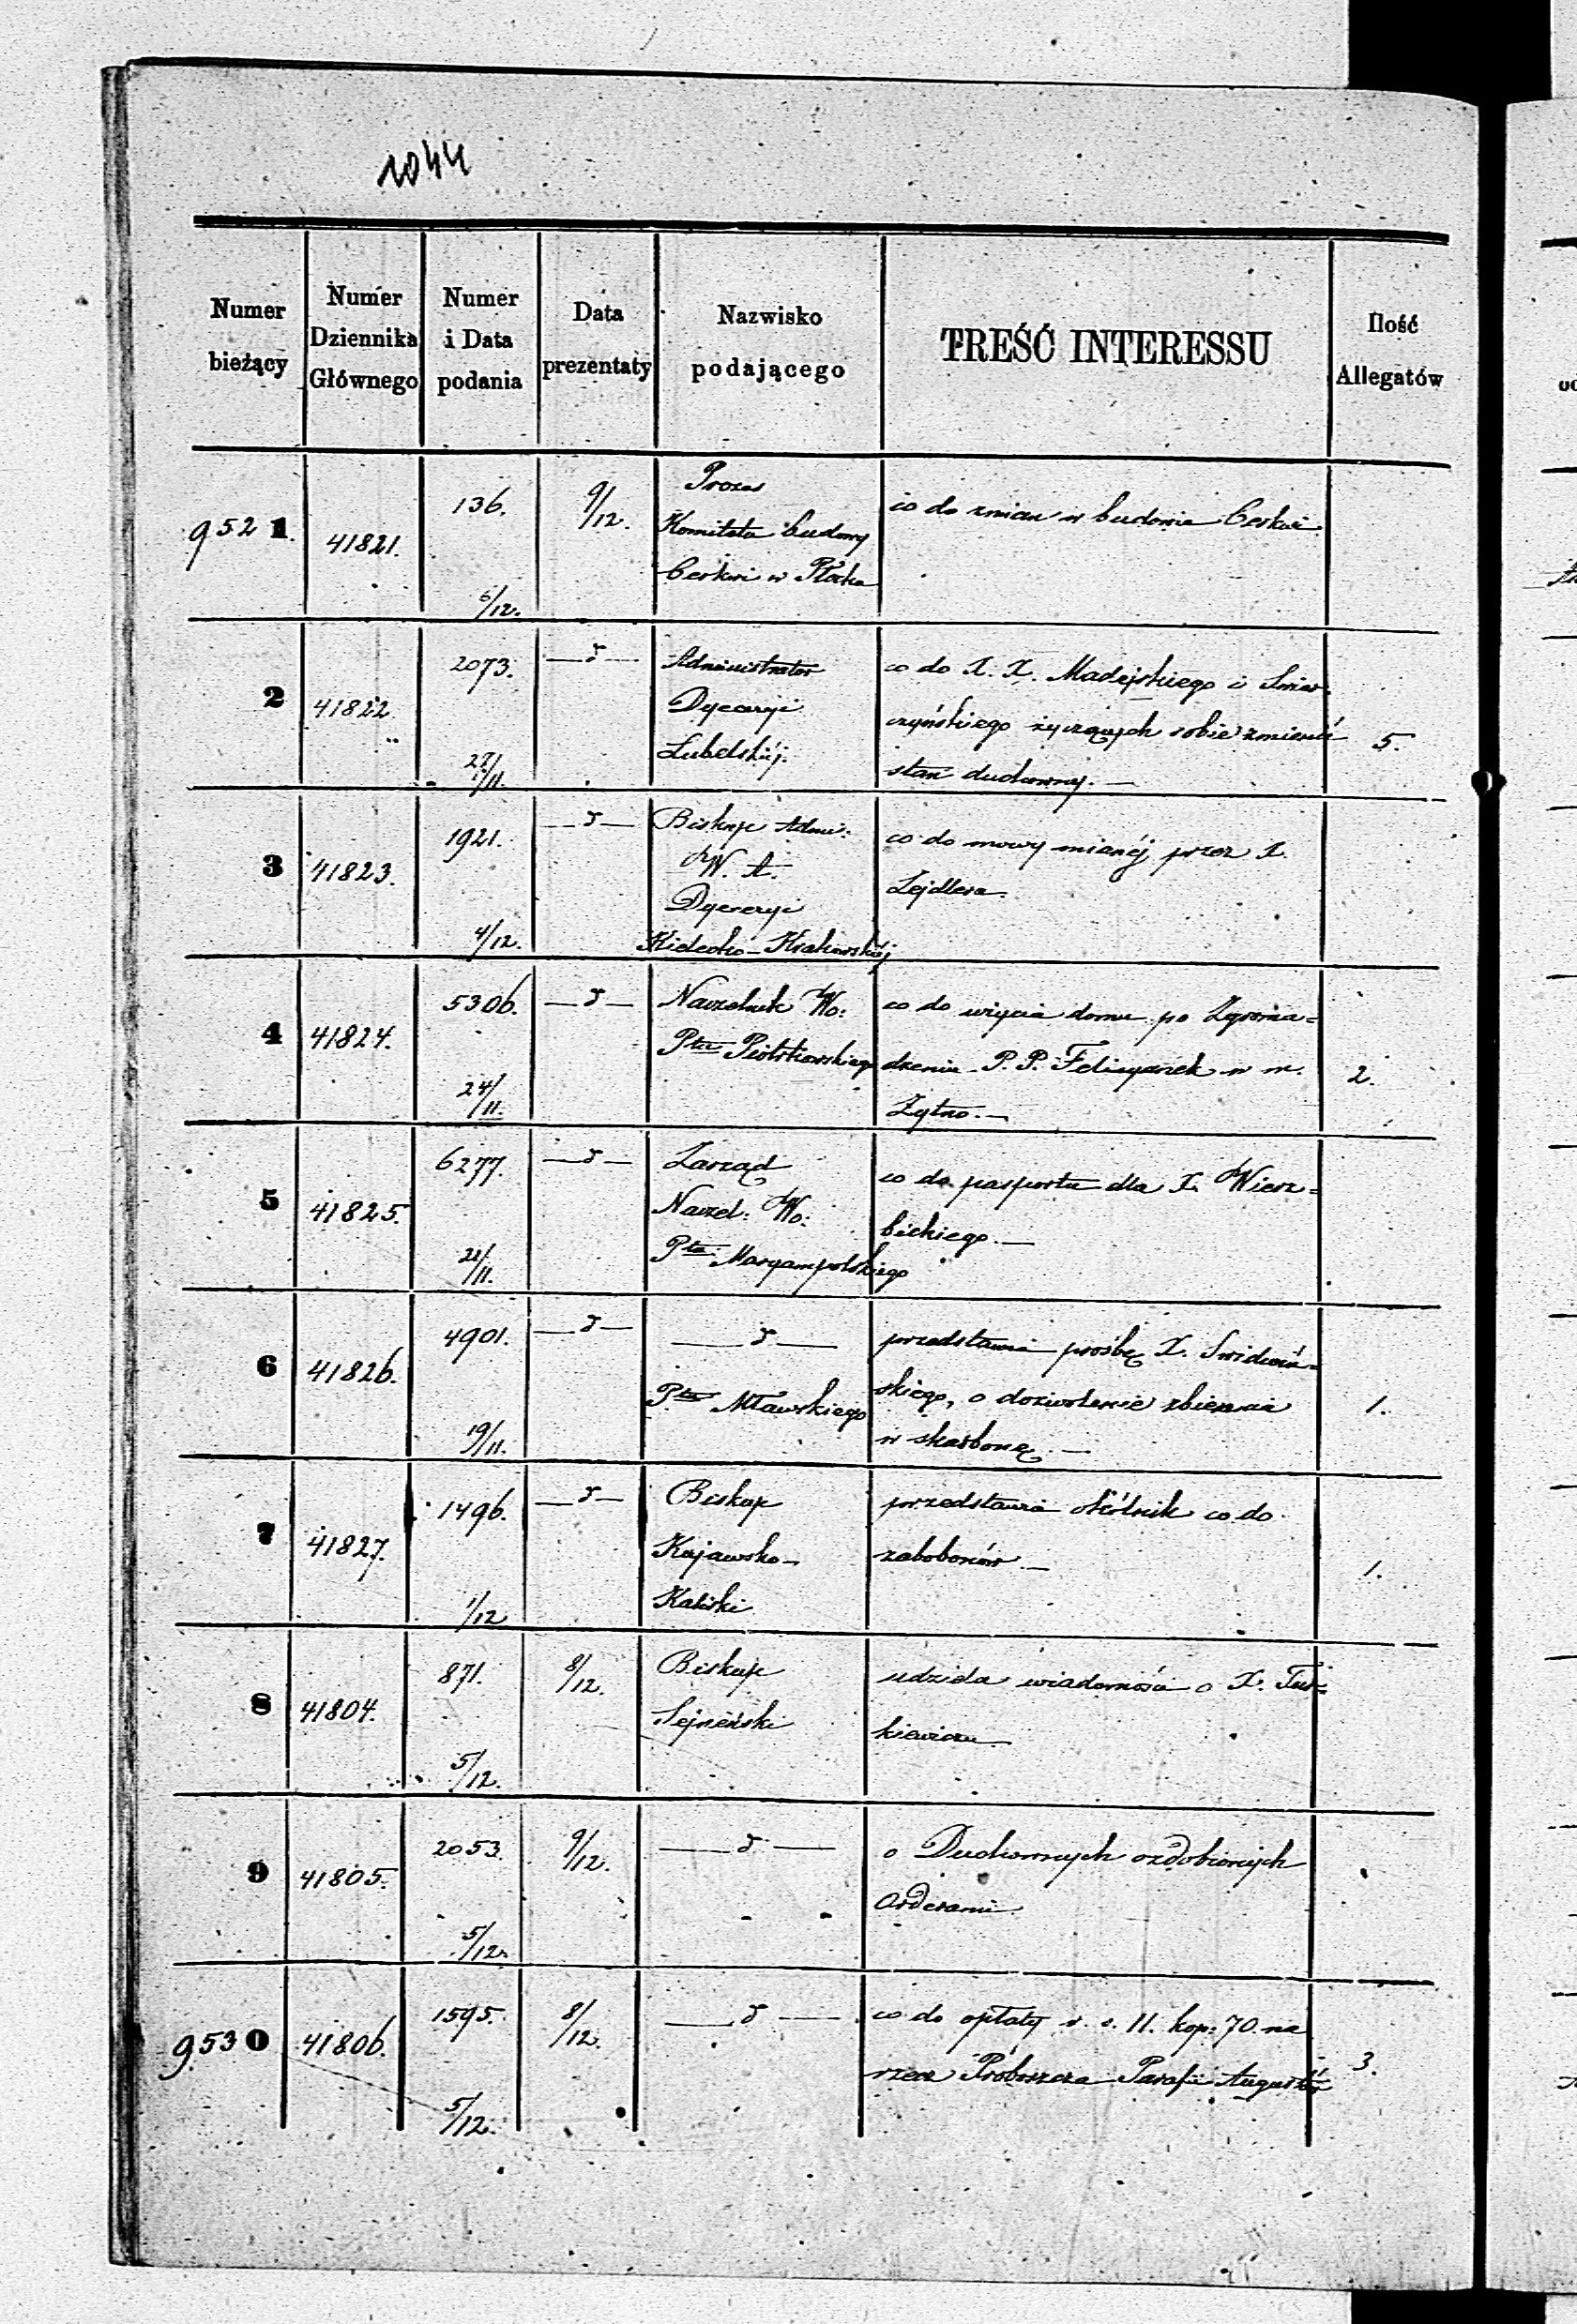 1044
Numer bieżący | Numer Dziennika Głównego | Numer i Data podania | Data prezentaty | Nazwisko podającego | TREŚĆ INTERESSU | Ilość Allegatów
9521. | 41821. | 136. 6/12. | 9/12. | Prezes
Komitetu budowy
Cerkwi w Płocku | co do zmian w budowie Cerkwi.
2 | 41822. | 2073. 27/11. | — d — | Administrator
Dyecezyi
Lubelskiéj. | co do X. X. Madejskiego i
czyńskiego życzących sobie zmienić
stan duchowny. — | 5.
3 | 41823. | 1921. 4/12. | — d — | Biskup Adm:
W. A.
Dyecezyi
Kielecko-Krakowskiéj | co do mowy mianéj przez X.
Zejdlera.
4 | 41824. | 5306. 24/11. | — d — | Naczelnik Wo:
Ptu Piotrkowskiego | co do użycia domu po Zgroma=
dzeniu P. P. Felicyanek w m.
Żytno. — | 2.
5 | 41825. | 6277. 21/11. | — d — | Zarząd
Naczel: Wo:
Ptu Maryampolskiego | co do pasportu dla X. Wierz=
bickiego. —
6 | 41826. | 4901. 19/11. | — d — | — d —
Ptu Mławskiego | przedstawia prośbę X.
skiego, o dozwolenie zbierania
w skarbonę. — | 1.
7 | 41827. | 1496. 1/12 | — d — | Biskup
Kujawsko-
Kaliski | przedstawia okólnik co do
zabobonów. — | 1.
8 | 41804. | 871. 5/12. | 8/12. | Biskup
Sejneński | udziela wiadomości o X.
kiewiczu.
9 | 41805. | 2053. 5/12. | 9/12. | — d — | o Duchownych ozdobionych
Orderami.
9530 | 41806. | 1595. 5/12. | 8/12. | — d — | co do opłaty r. s. 11. kop: 70. na
rzecz Proboszcza Parafii Augustów | 3.